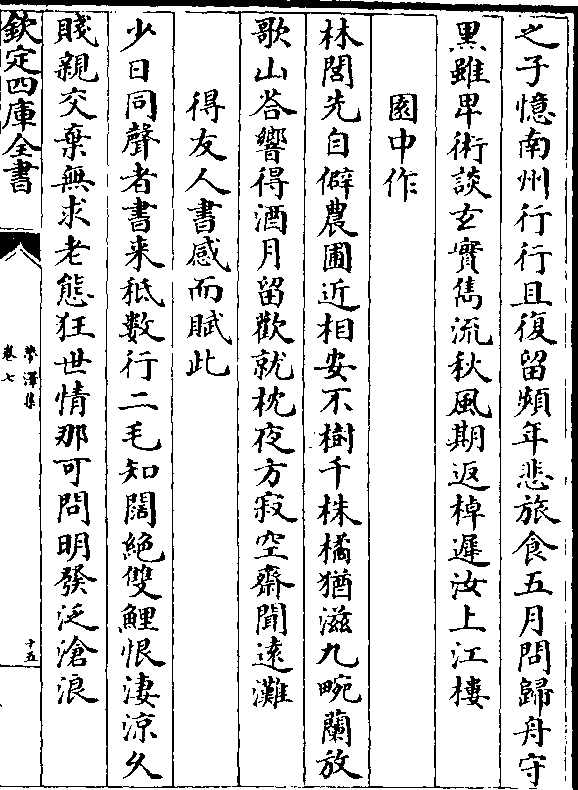 之子憶南州行行且復留頻年悲旅食五月問歸舟守
黑雖卑術談玄實雋流秋風期返棹遲汝上江樓
園中作
林閣先自僻農圃近相安不樹千株橘猶滋九畹蘭放
歌山荅響得酒月留歡就枕夜方寂空齋聞遠灘
得友人書感而賦此
少日同聲者書来秪數行二毛知闊絶雙鯉恨淒涼久
賤親交棄無求老態狂世情那可問明發泛滄浪
欽定四庫全書
夢澤集
卷七
十五